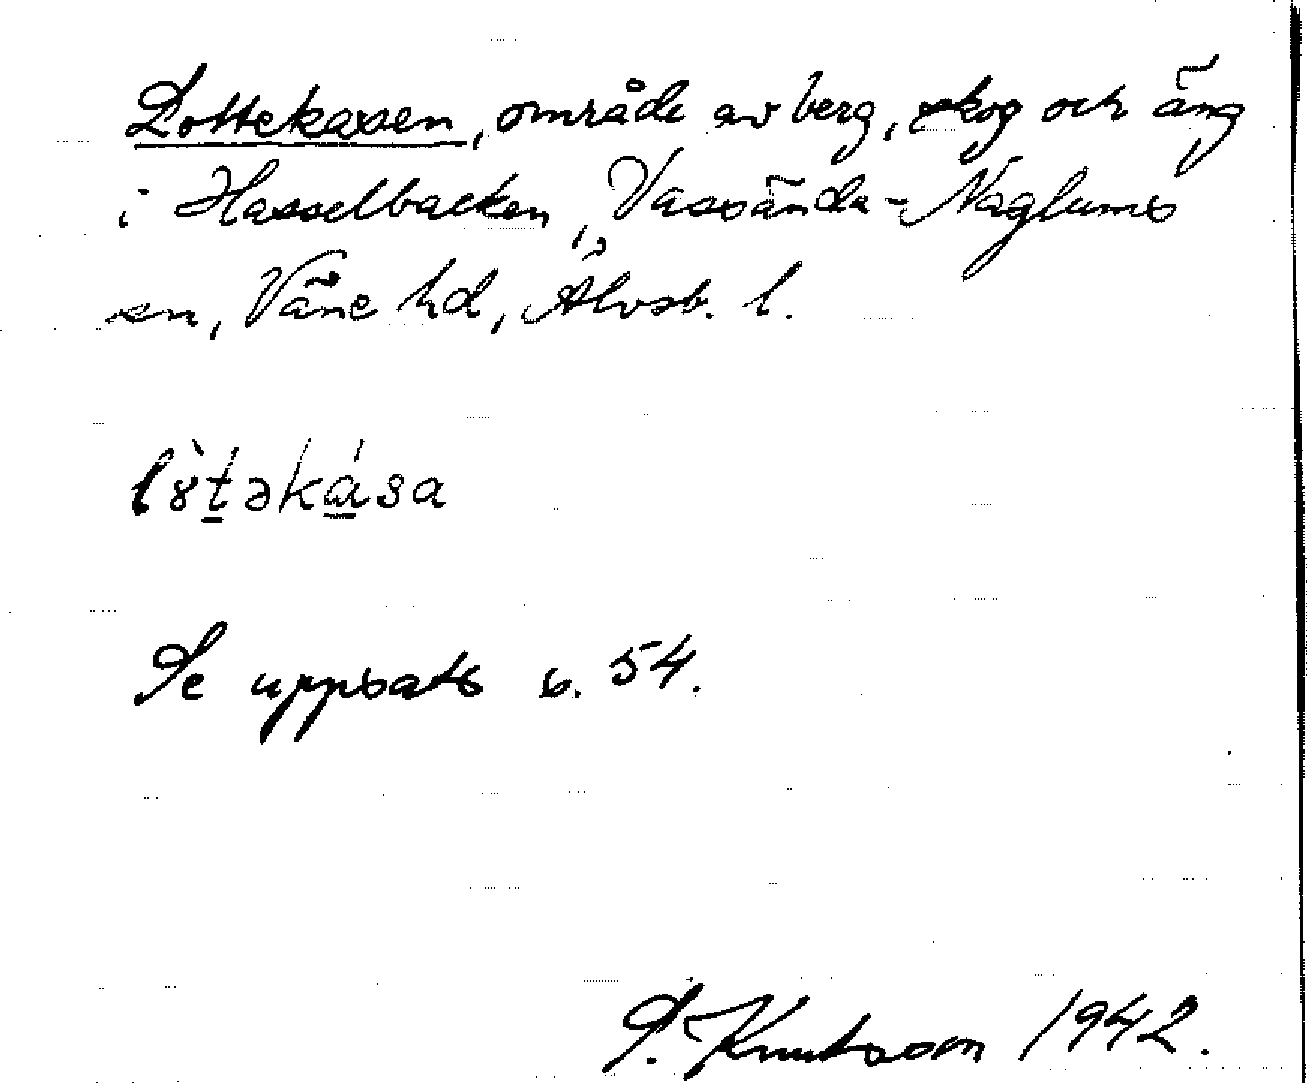 Lottekasen, område av berg, skog och äng
i Hasselbacken, Vassända-Naglums
sn, Väne hd, Älvsb. l.
lòtəkása
Se uppsats s. 54.
P. Knutsson 1942.